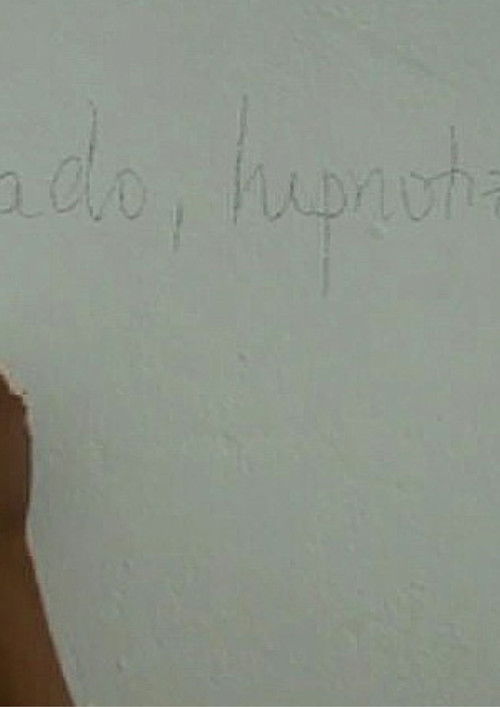 ado, hipnotiz